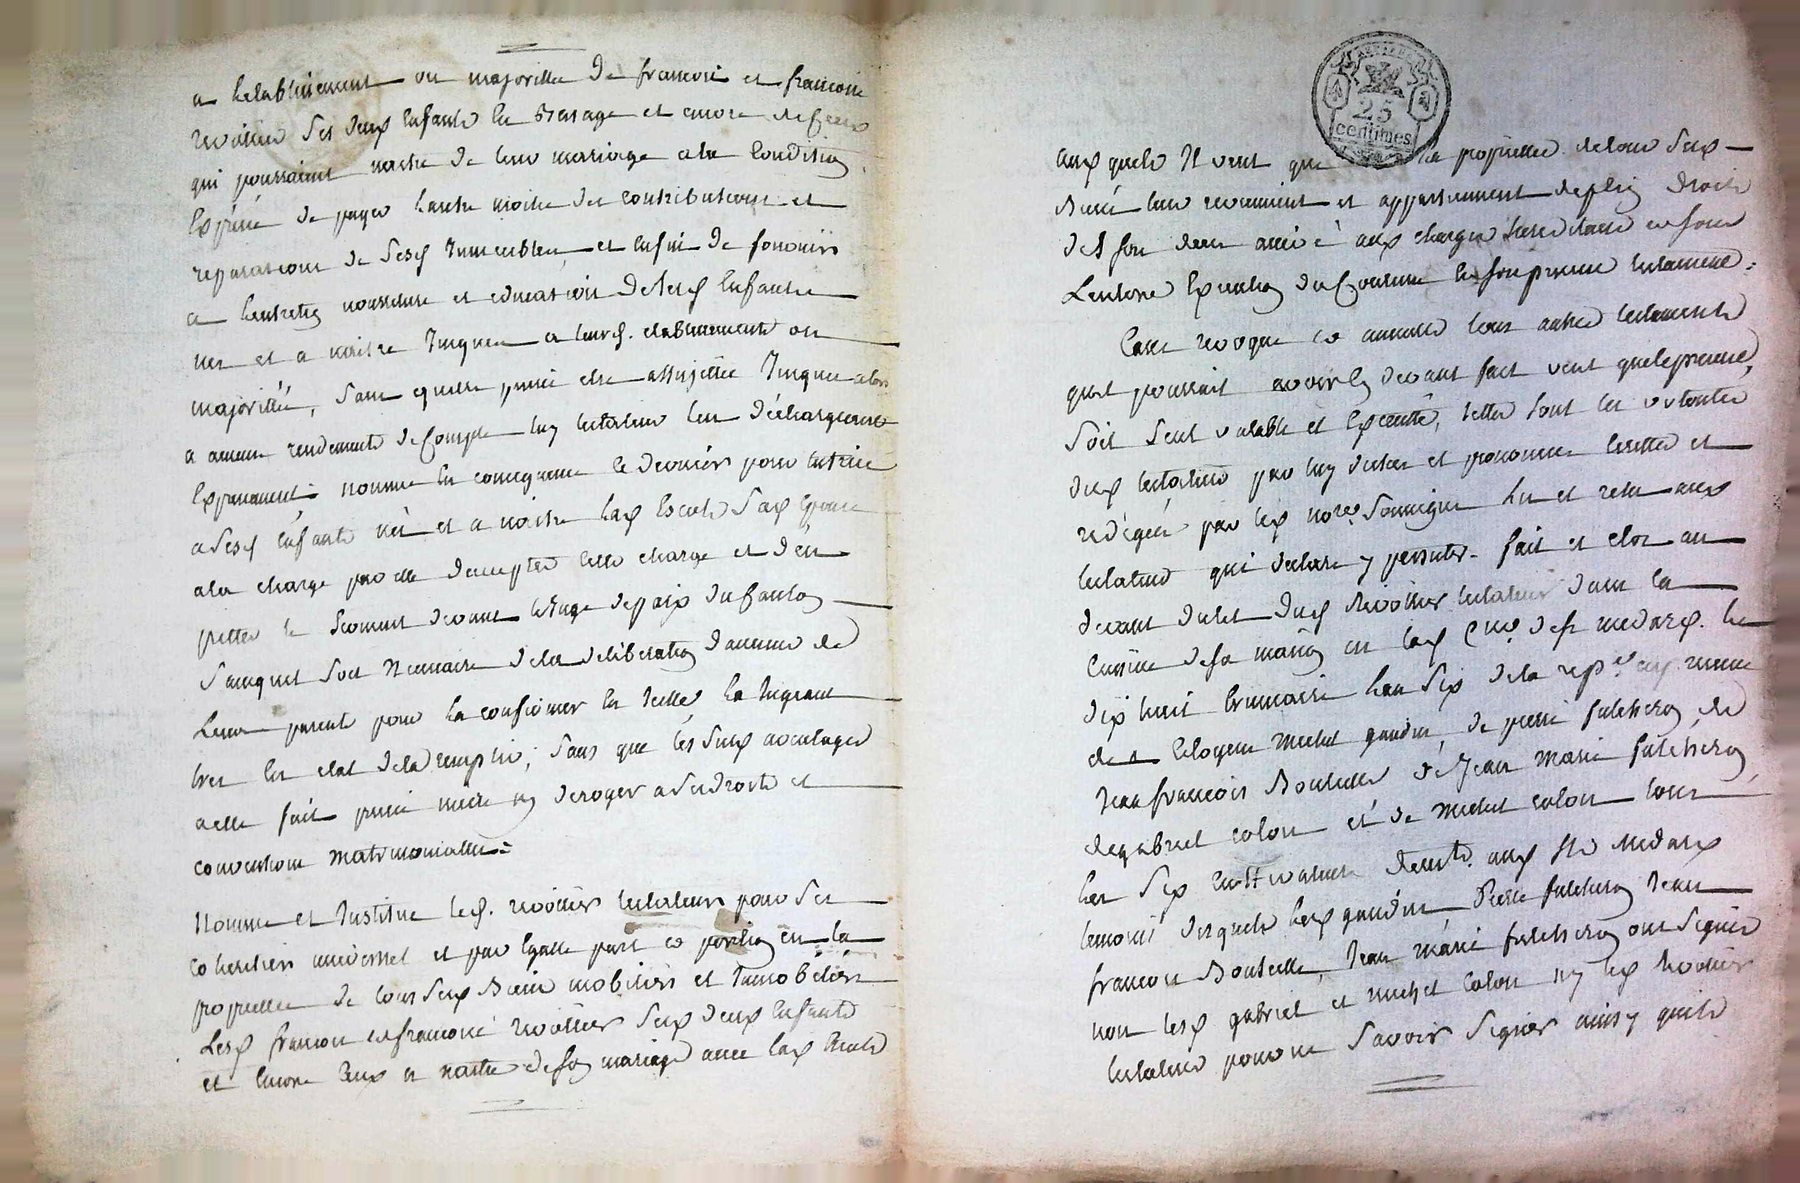 a letablissement ou majorité de francois et francoise
revottier ses deux Enfants en bas age et encore de ceux
qui pourraient naitre de leur mariage a la Condition
Expresse de payer lautre moitié des contributions et
reparations de sesd Immeubles, et enfin de fournir
a lentretien nourriture et education de sesd Enfants
nes et a naitre Jusques a leurs. etablissements ou
majorités, sans quelle puisse etre assujettie Jusques alors
a aucun rendements de Compte luy testateur len déchargeant
Expressement; nomme en consequence ce dernier pour tutrice
a sesd Enfants nés et a naitre lad Escot Sad Epouse
a la charge par elle daccepter cette charge et d'en
preter le Serment devant le Juge de paix du Canton
Sauf quil soit Necessaire de la deliberation daucuns de
Leurs parents pour la confirmer en icelle la Jugeant
bien en etat de la remplir; sans que les susd avantages
a elle fait puisse nuire ny deroger a ses droits et
conventions matrimoniales =
Nomme et Institue led. revottier testateur pour ses
coheritiers universel et par Egalle part et portion en la
proprieté de tous sesd Biens mobiliers et Immobiliers
Lesd francois et francoise revottier sesd deux Enfants
et Encore Ceux a naitre de son mariage avec lad Escot
25
centimes
aux quels Il veut que la proprieté de tous sesd
Biens leur reviennent et appartiennent de plein droit
des son deces arrivé aux charges hereditaires et sous
Lentiere Execution du Contenu en son present testament =
Casse revoque et annulle tous autres testaments
quil pourrait avoir cy devant fait veut que le present,
Soit Seul valable et Executté, telles sont les volontés
dud testateur par luy dictées et prononcées Ecrittes et
redigées par led nore. Soussigné lu et relu aud
testateur qui declare y persister - fait et clos au
devant du lit dud Revottier testateur dans la
cuisine de sa maison en lad Cne. de st medard. le
dix huit brumaire lan six de la repe. en presence
de Citoyens Michel gaudin, de pierre fulchiron, de
Jean francois Bouteille de Jean Marie fulchiron,
de gabriel colon et de Michel colon tous
les six cultivateurs demts. aud St Medard
temoins desquels lesd gaudin, Pierre fulchiron Jean
francois Bouteille, Jean marie fulchiron ont Signés
non lesd gabriel et michel Colon ny led Revottier
testateur pour ne Savoir Signer ainsy quils